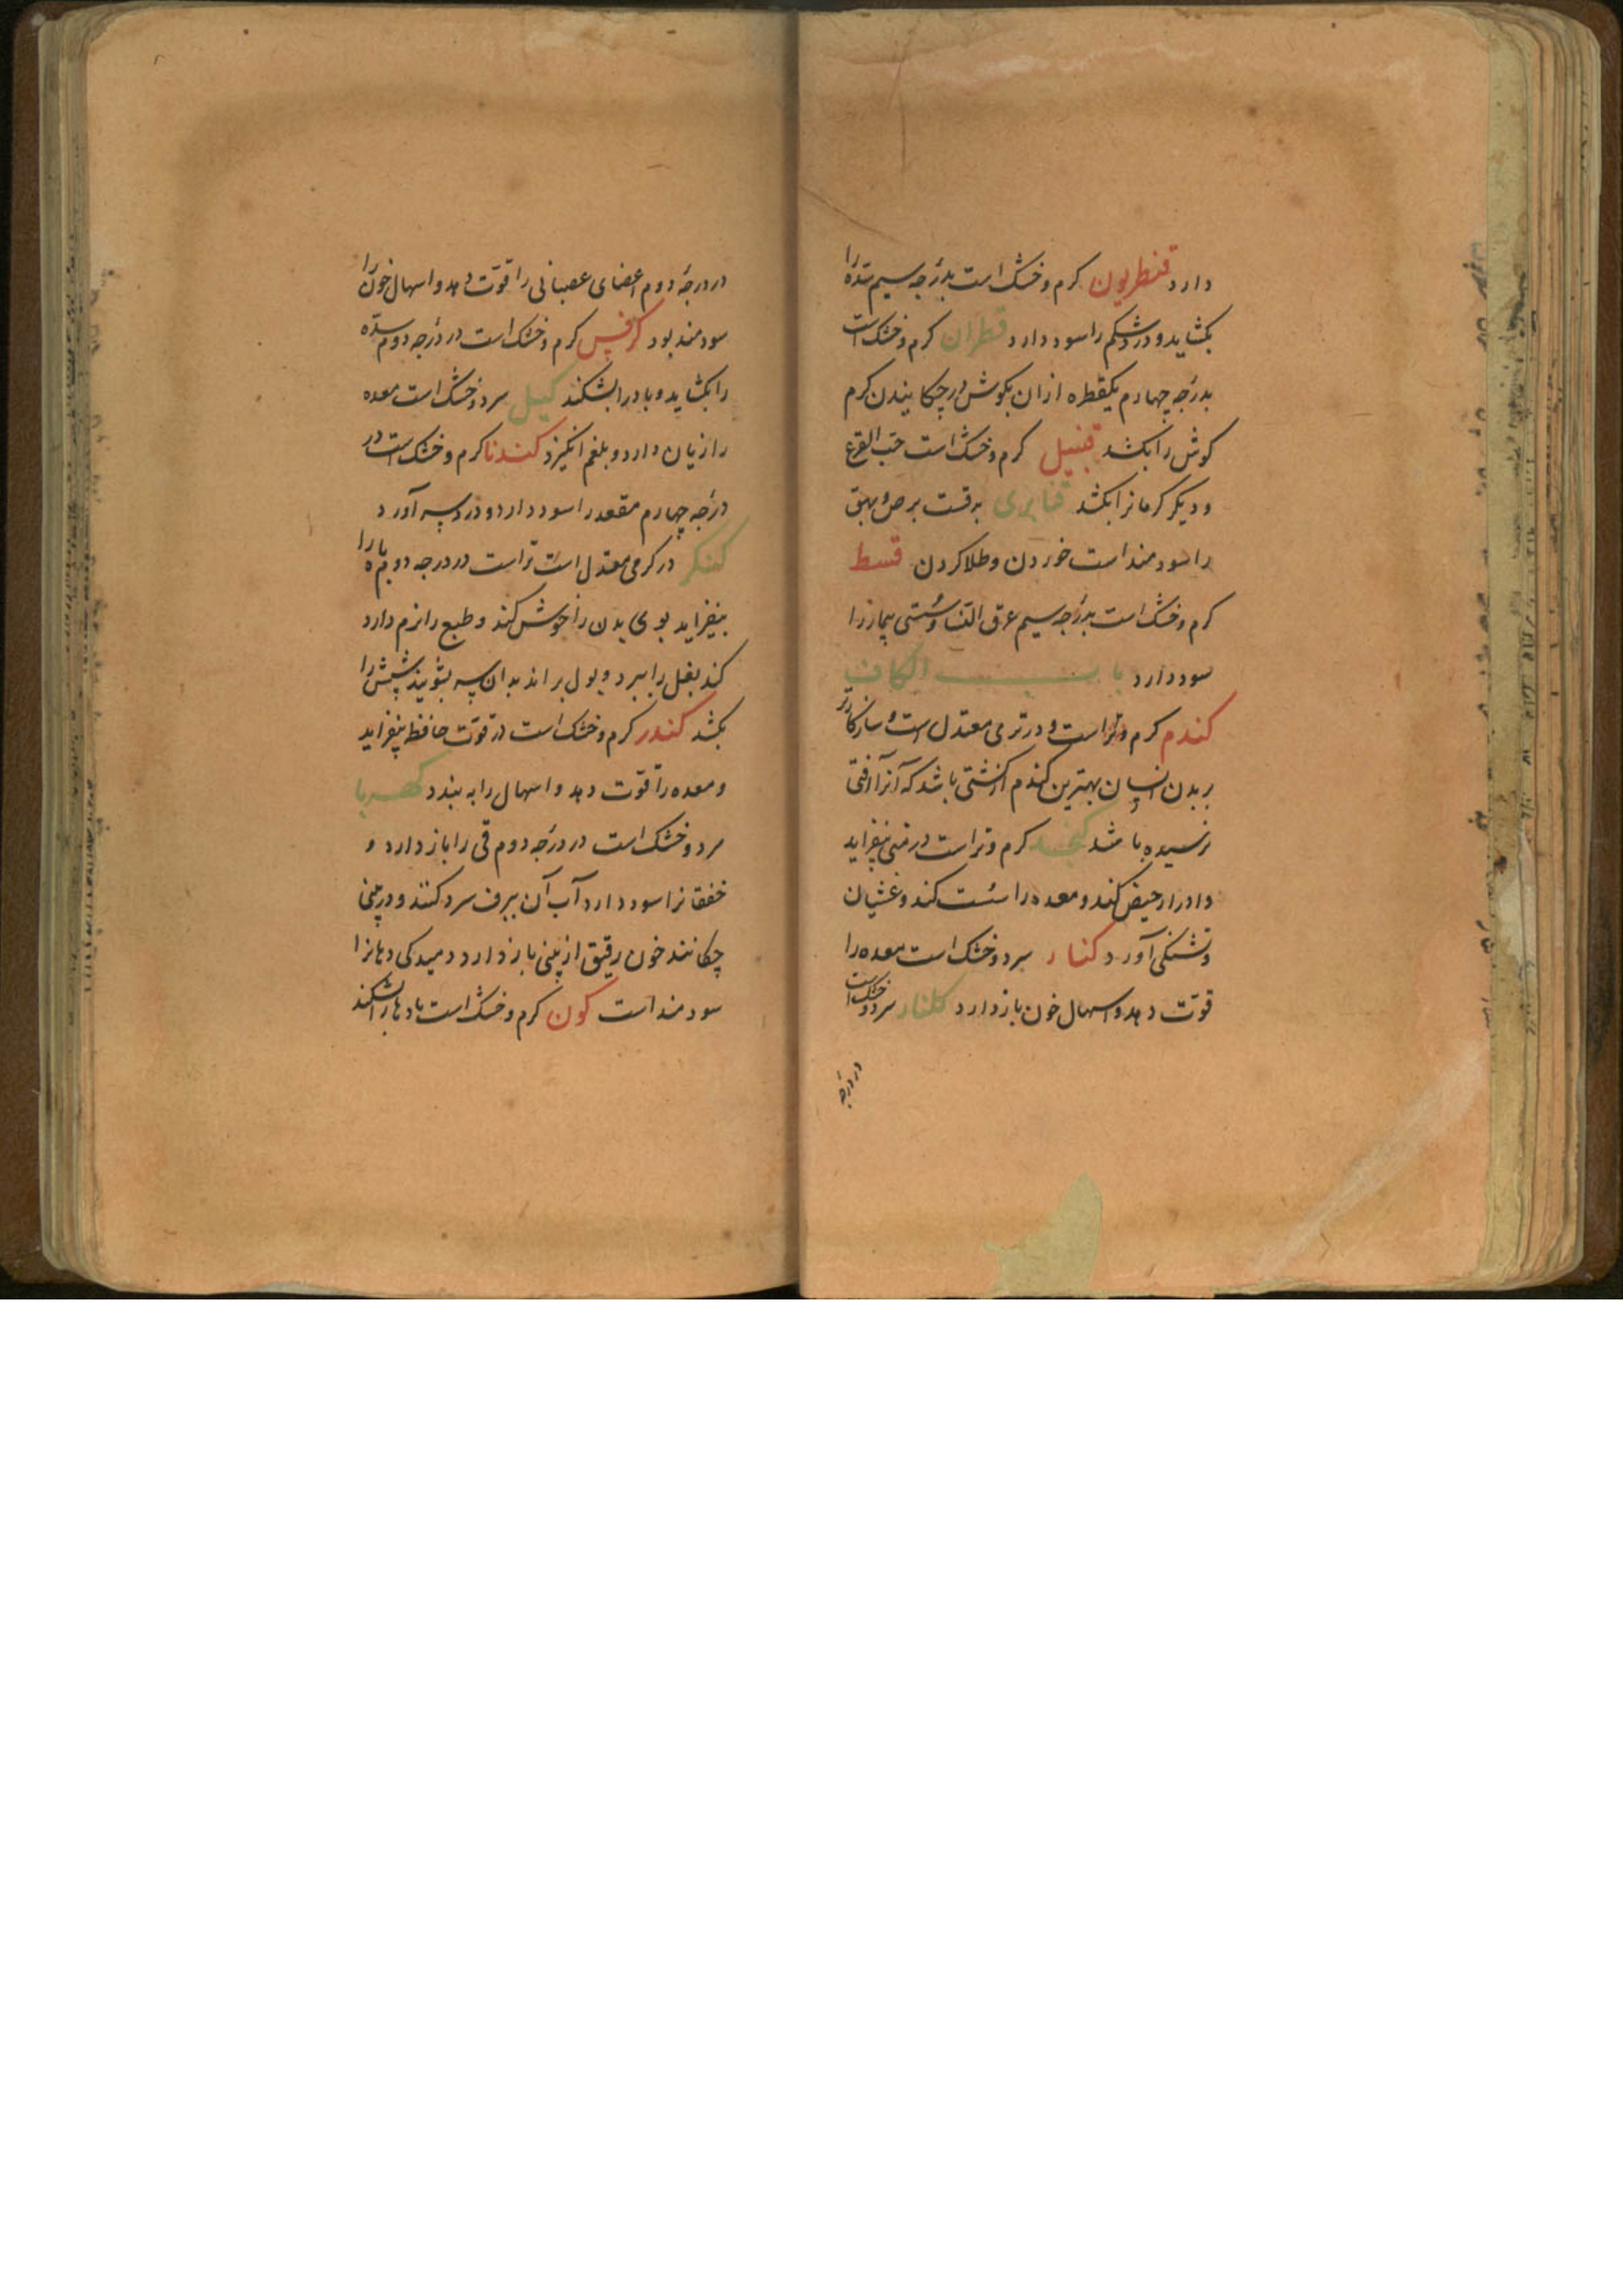 دارد قنطریون کرم و خشک است بدرجه سیم سده را
بکشاید و درد شکم را سود دارد قطران کرم و خشک است
بدرجه چهارم یکقطره ازان بکوش در چکانیدن کرم
کوش را بکشد قنبیل کرم و خشک است حب القرع
و دیکر کرمانرا بکشد قنابری به قست برص و بهق
را سودمند است خوردن و طلا کردن قسط
کرم و خشک است بدرجه سیم عرق النسا و سستی را
سود دارد باب الکاف
کندم کرم و تر است و در تری معتدل است و سازکارتر
بر بدن انسان بهترین کندم کشتی باشد که آنرا آفتی
نرسیده باشد کنجد کرم و تر است در منی بیفزاید
و ادرار حیض کند و معده را سست کند و غشیان
و تشنکی آورد کنار سرد و خشک است معده را
قوّت دهد و اسهال خون باز دارد کلنار سرد و خشک است
در درجه
در درجه دوم اعضای عصبانی را قوّت دهد و اسهال خون را
سودمند بود کرفس کرم و خشک است در درجه دوم سدّه
را بکشاید و باد را بشکند کیل سرد و خشک است معده
را زیان دارد و بلغم انکیزد کندنا کرم و خشک است در
درجه چهارم مقعد را سود دارد و درد سر آورد
کنکر در کرمی معتدل است تر است در درجه دوم باه را
بیفزاید بوی بدن را خوش کند و طبع را نرم دارد
کند بغل را ببرد و بول براند بدان سر بشویند شپش را
بکشد کندر کرم و خشک است در قوّت حافظه بیفزاید
و معده را قوّت دهد و اسهال را به بندد کهربا
سرد و خشک است در درجه دوم قی را باز دارد و
خفقانرا سود دارد آب آن ببرف سرد کنند و در بینی
چکانند خون رقیق از بینی باز دارد دمیدکی دهانرا
سودمند است کمون کرم و خشک است بادها را بشکند